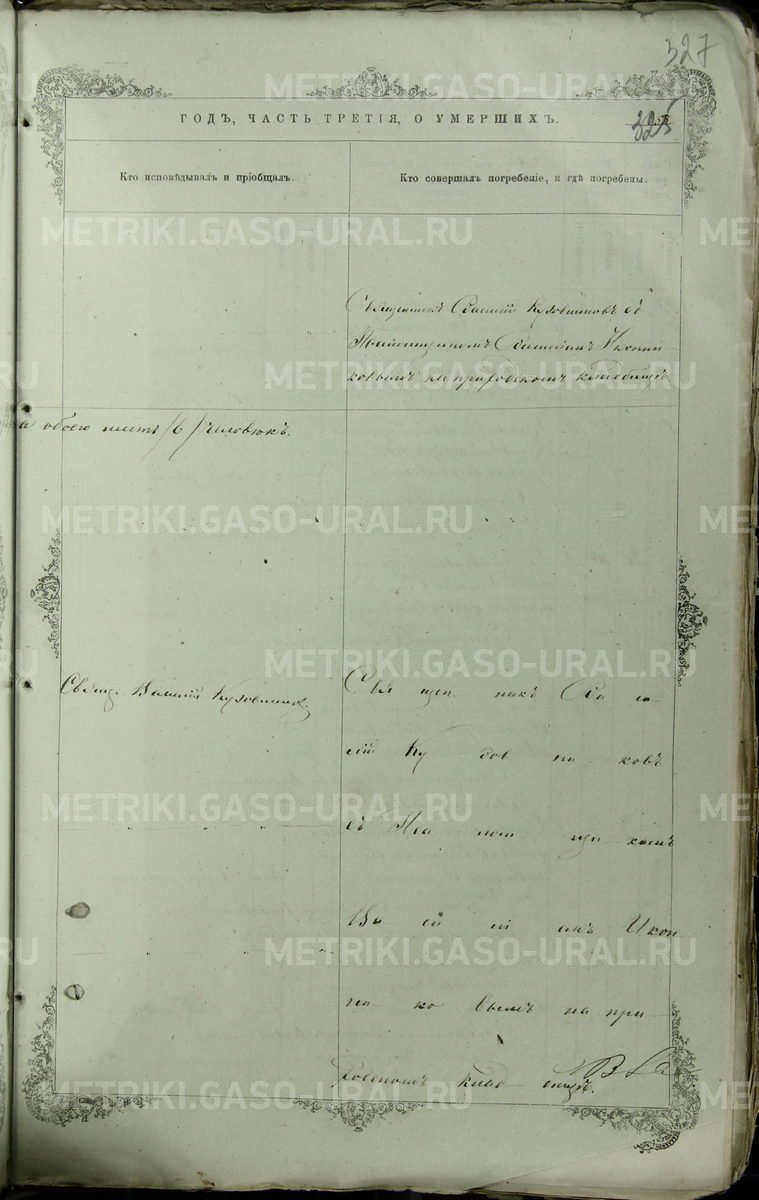 327
325
ГОДЪ, ЧАСТЬ ТРЕТІЯ, О УМЕРШИХЪ.
Кто исповѣдывалъ и пріобщалъ.
Кто совершалъ погребеніе, и гдѣ погребены.
Священникъ Василій Кузовниковъ съ
Василіемъ Икони-
ковымъ на приходскомъ кладбищѣ
а обоего /6/ человѣкъ.
Свящ. Василій Кузовниковъ
Свя щен никъ Ва си-
лій Ку зов ни ковъ
съ щи комъ
Ва си лі емъ Икон
ни ко вымъ на при-
ходскомъ клад бищѣ.
METRIKI.GASO-URAL.RU